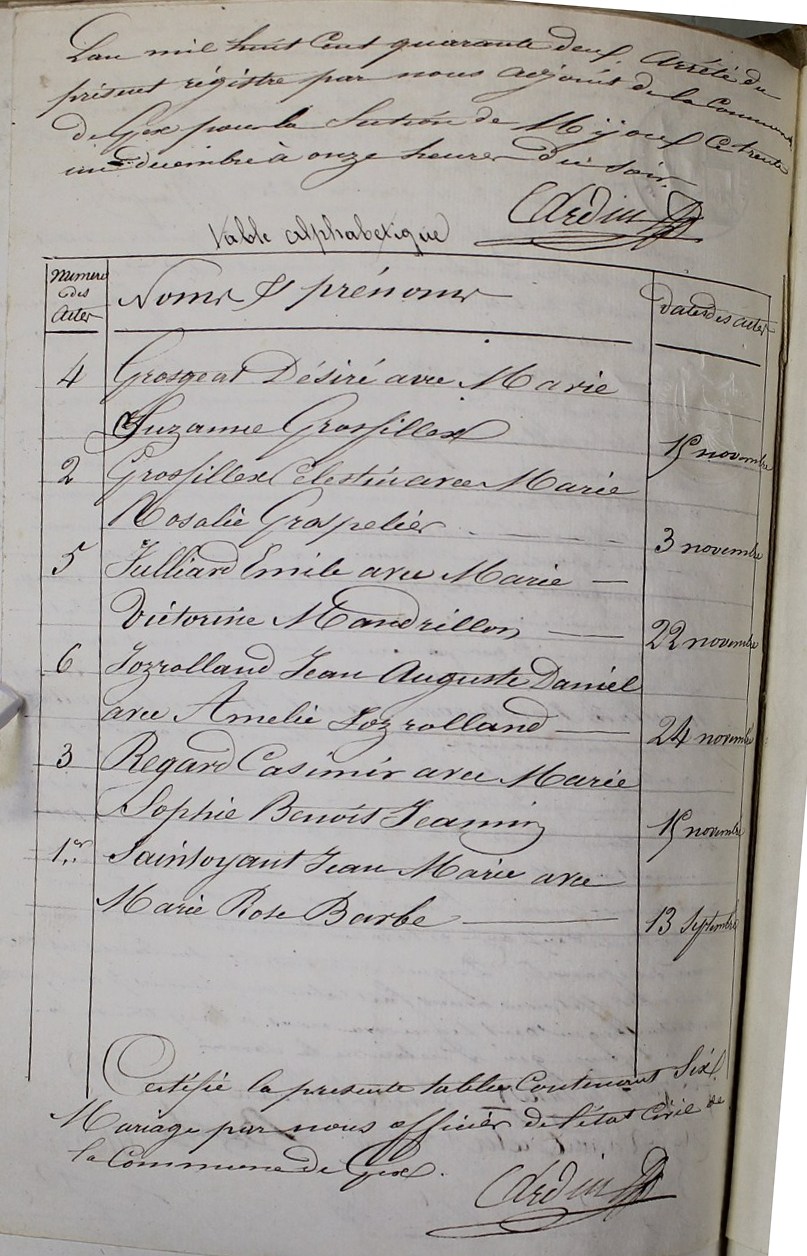 L'an mil huit Cent quarante deux. Arrêté du
présent régistre par nous adjoint de la Commune
de Gex pour la Section de Mijoux Ce trente
un decembre à onze heures du soir.
Table alphabetique
Numero
des
Actes
Noms & prénoms
dates des actes
4 Grosgeat Désiré avec Marie
Suzanne Grosfillex 15 novembre
2 Grosfillex Celestin avec Marie
Rosalie Grospelier 3 novembre
5 Julliard Emile avec Marie
Victorine Mandrillon 22 novembre
6 Jean Auguste Daniel
avec Amelie 24 novembre
3 Regard Casimir avec Marie
Sophie Benoit Jeannin 15 novembre
1.er Saintoyant Jean Marie avec
Marie Rose Barbe 13 Septembre
Certifié la presente table Contenant Six
Mariage par nous officier de l'état Civil de
la Commune de Gex.